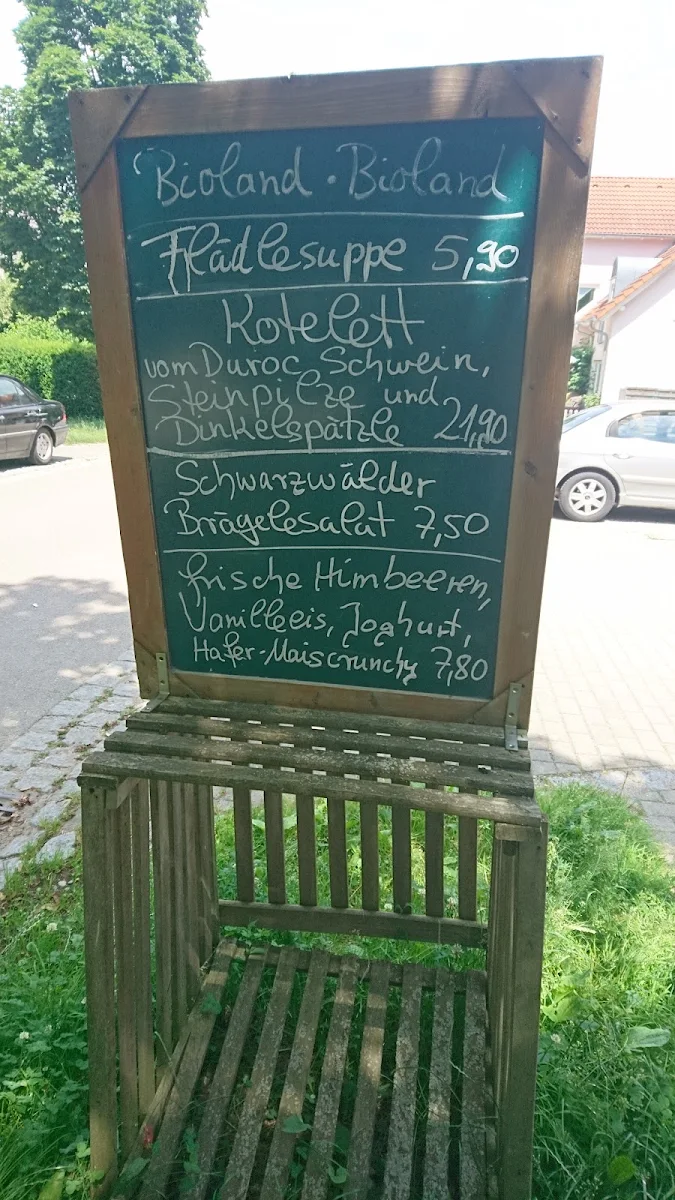 Bioland · Bioland
Flädlesuppe 5,90
Kotelett
vom Duroc Schwein,
Steinpilze und
Dinkelspätzle 21,90
Schwarzwälder
Brägelesalat 7,50
frische Himbeeren,
Vanilleeis, Joghurt,
Hafer-Maiscrunchy 7,80